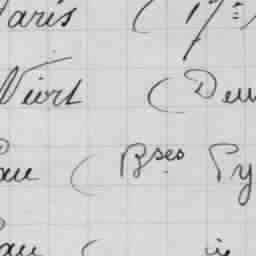 Paris (17=
Niort (Deu
Pau (Bses Py
Pau (